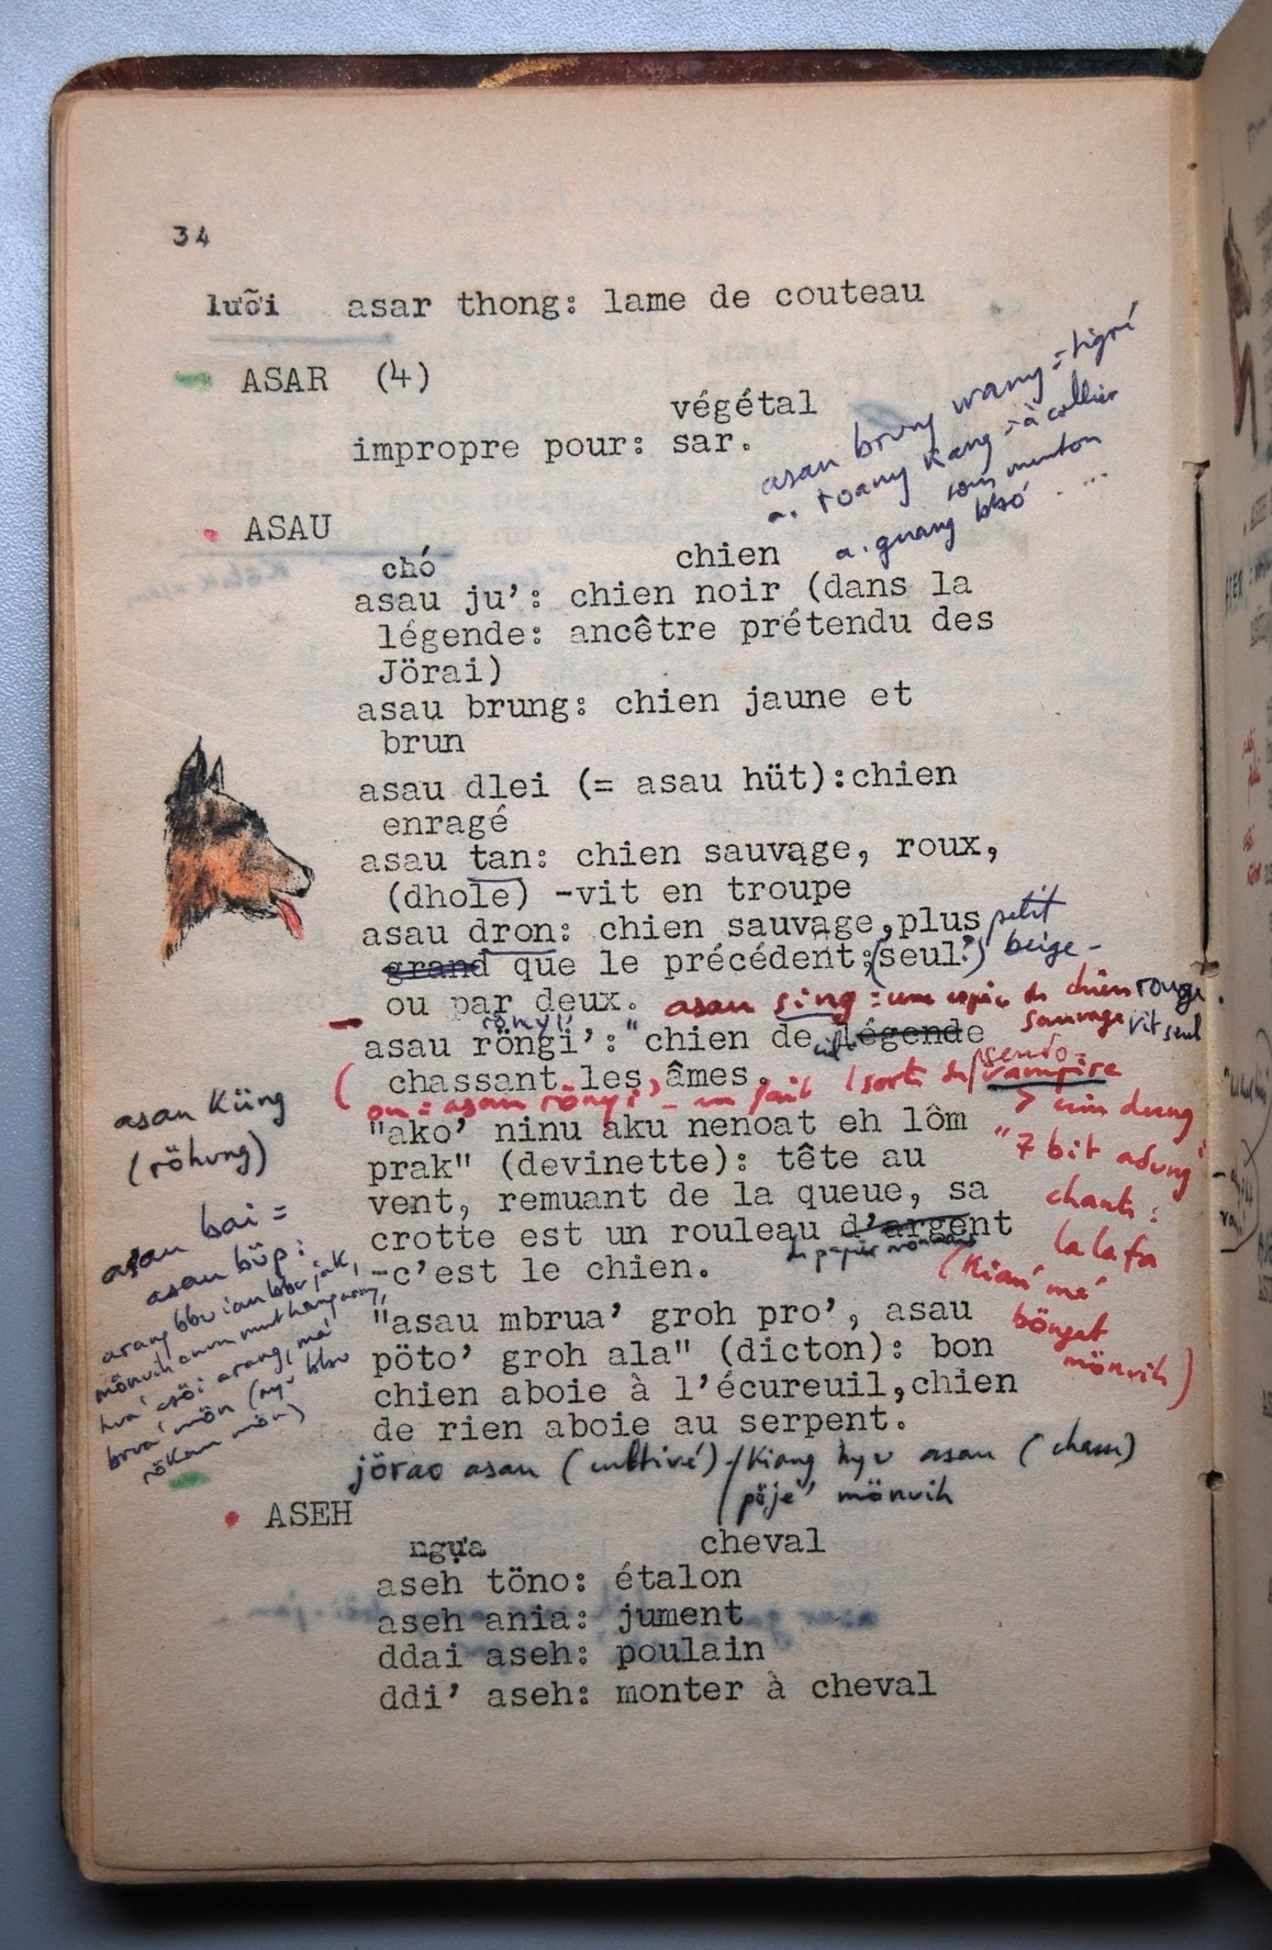 34
lưỡi asar thong: lame de couteau
ASAR (4)
végétal
impropre pour: sar.
asau brung wang = tigré
a. roang kang = à collier
sous menton
a. guang bbó ....
ASAU
chó chien
asau ju': chien noir (dans la
légende: ancêtre prétendu des
Jörai)
asau brung: chien jaune et
brun
asau dlei (= asau hüt):chien
enragé
asau tan: chien sauvage, roux,
(dhole) -vit en troupe
asau dron: chien sauvage,plus petit
grand que le précédent;(seul?) beige -
ou par deux. asau sing : une espèce de chien rouge.
sauvage vit seul
rönyi'
asau röngi':"chien de légende
chassant les âmes.
(ou : asau rönyi' - en fait (sorte de pseudo-
vampire
"ako' ninu aku nenoat eh lôm
prak" (devinette): tête au
vent, remuant de la queue, sa
crotte est un rouleau d'argent
de papier
-c'est le chien.
"7 bit adung"
chante :
la la fa
(Kian' má
böngat
mönuih)
"asau mbrua' groh pro', asau
pöto' groh ala" (dicton): bon
chien aboie à l'écureuil,chien
de rien aboie au serpent.
jörao asau (cultivé)/Kiang hyu asau (cham)
pöje' mönuih
asau Küng
(röhung)
asau bai =
asau büp :
ASEH
ngựa cheval
aseh töno: étalon
aseh ania: jument
ddai aseh: poulain
ddi' aseh: monter à cheval